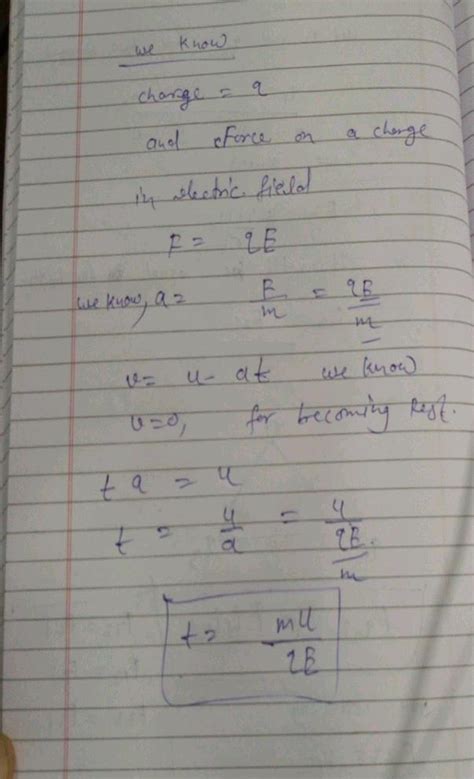 we know
charge = q
and Force on a charge
in electric field
F = qE
we know, a = F/m = qE/m
v = u - at we know
v=0, for becoming Rest.
t a = u
t = u/a = u/qE/m
t = mu/qE